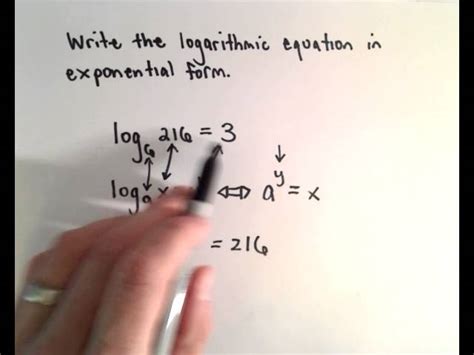 Write the logarithmic equation in
exponential form.
log₆ 216 = 3
logₐ x ⇔ aʸ = x
= 216